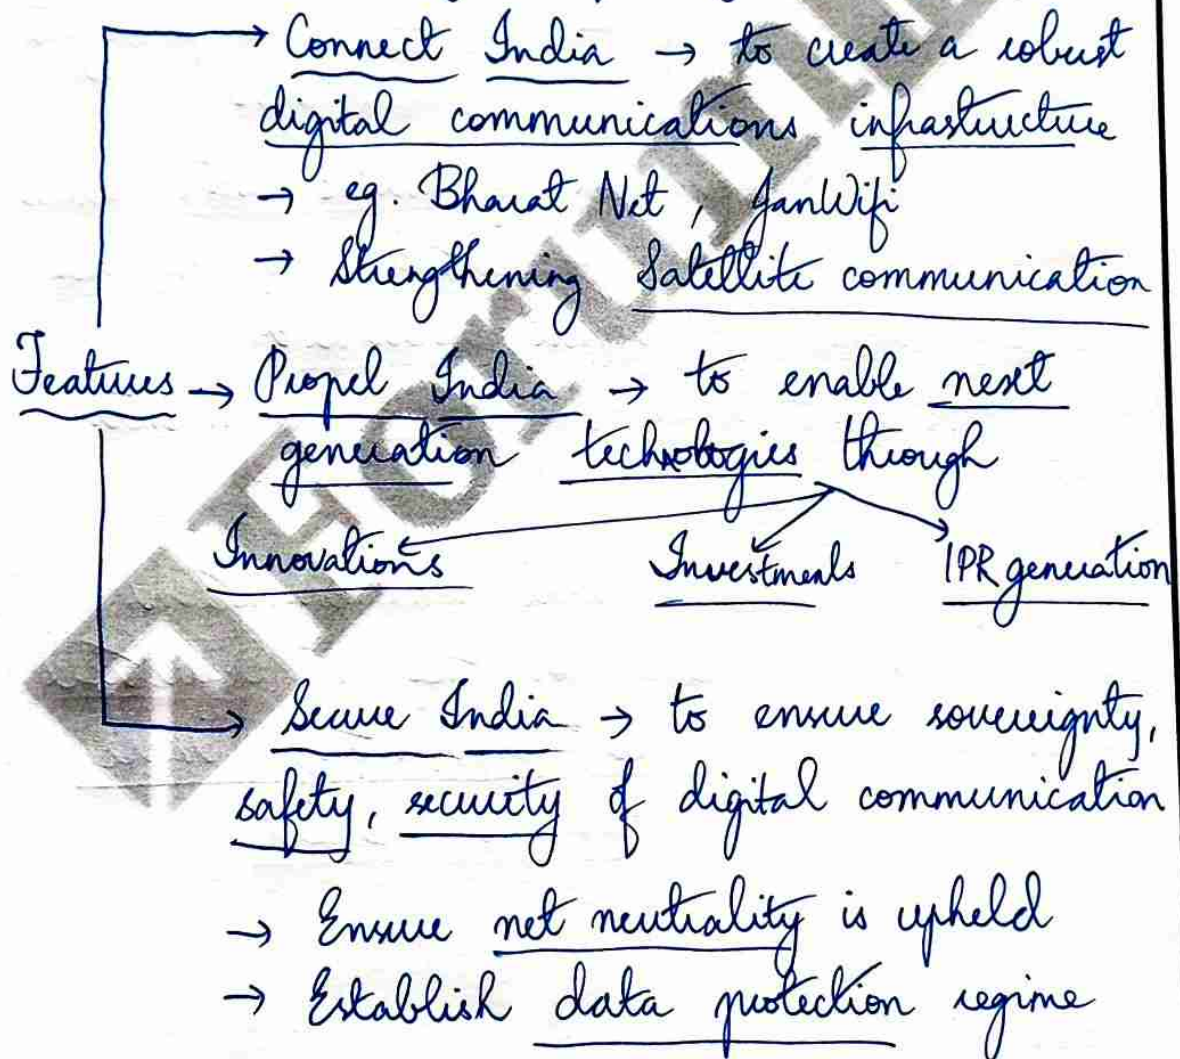 Connect India → to create a robust
digital communications infrastructure
→ eg. Bharat Net, JanWifi
→ Strengthening Satellite communication
Features → Propel India → to enable next
generation technologies through
Innovations Investments IPR generation
Secure India → to ensure sovereignty,
safety, security of digital communication
→ Ensure net neutrality is upheld
→ Establish data protection regime
ForumI